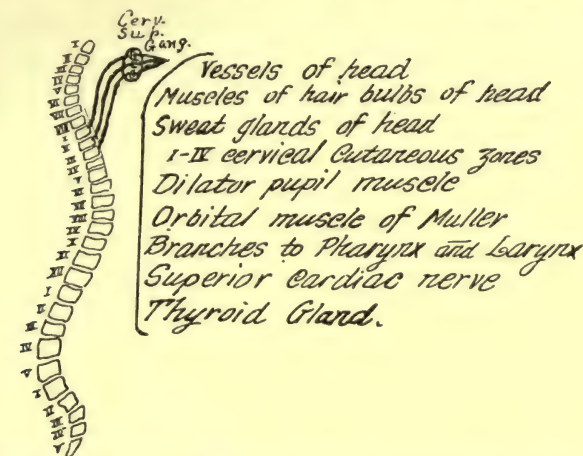 Cerv.
Sup.
Gang.
Vessels of head
Muscles of hair bulbs of head
Sweat glands of head
I-IV cervical Cutaneous zones
Dilator pupil muscle
Orbital muscle of Muller
Branches to Pharynx and Larynx
Superior cardiac nerve
Thyroid Gland.